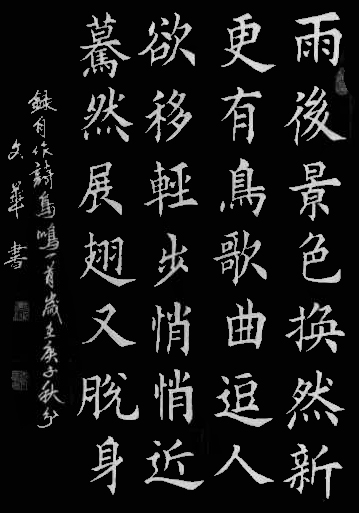 雨後景色換然新
更有鳥歌曲逗人
欲移輕步悄悄近
驀然展翅又脫身
錄自作詩鳥鳴一首歲在庚子秋兮
文華書